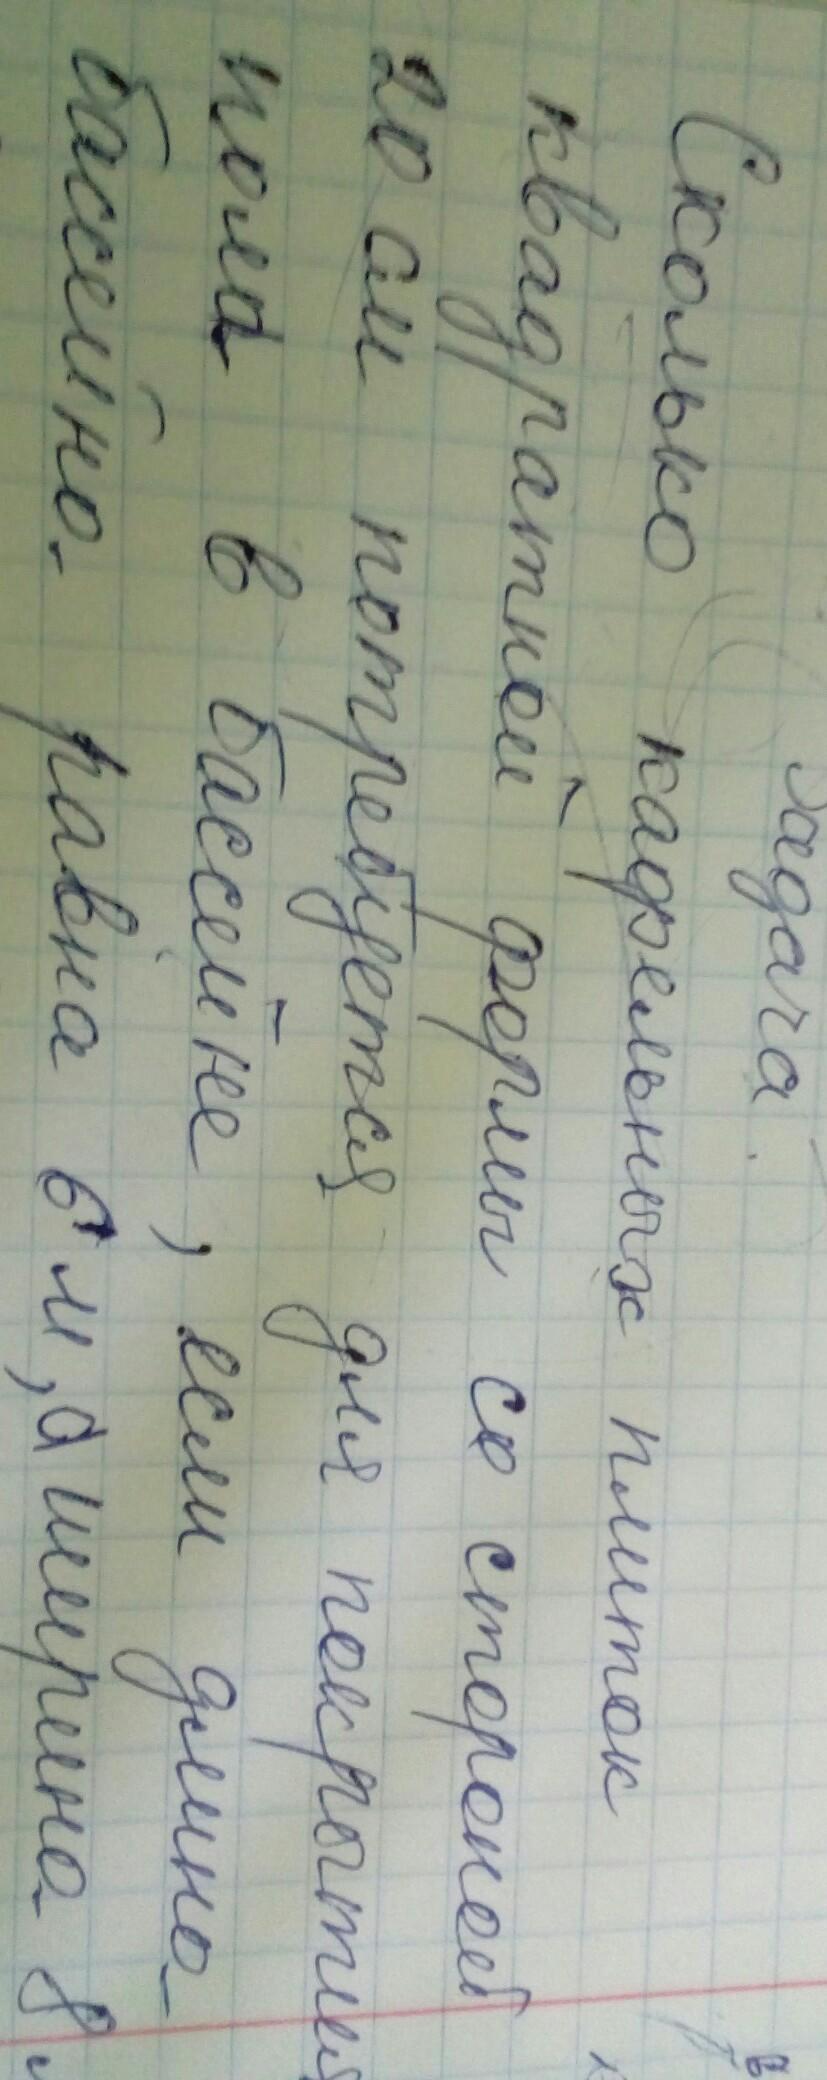 Задача
Сколько кафельных плиток
квадратной формы со стороной
20 см потребуется для покрытия
пола в бассейне, если длина
бассейна равна 6 м, а ширина 8 м